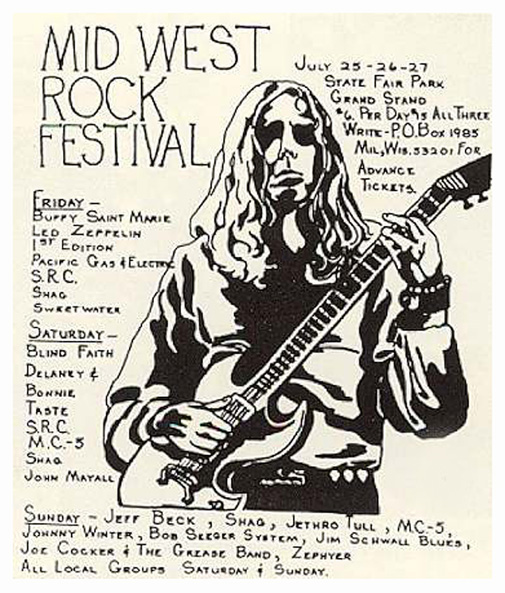 MID WEST
ROCK
FESTIVAL
JULY 25-26-27
STATE FAIR PARK
GRAND STAND
$6. PER DAY $15 ALL THREE
WRITE-P.O. BOX 1985
MIL, WIS. 53201 FOR
ADVANCE
TICKETS.
FRIDAY -
BUFFY SAINT MARIE
LED ZEPPELIN
1ST EDITION
PACIFIC GAS & ELECTRIC
S.R.C.
SHAG
SWEETWATER
SATURDAY -
BLIND FAITH
DELANEY &
BONNIE
TASTE
S.R.C.
M.C.-5
SHAG
JOHN MAYALL
SUNDAY - JEFF BECK, SHAG, JETHRO TULL, M.C-5,
JOHNNY WINTER, BOB SEEGER SYSTEM, JIM SCHWALL BLUES,
JOE COCKER & THE GREASE BAND, ZEPHYER
ALL LOCAL GROUPS SATURDAY & SUNDAY.